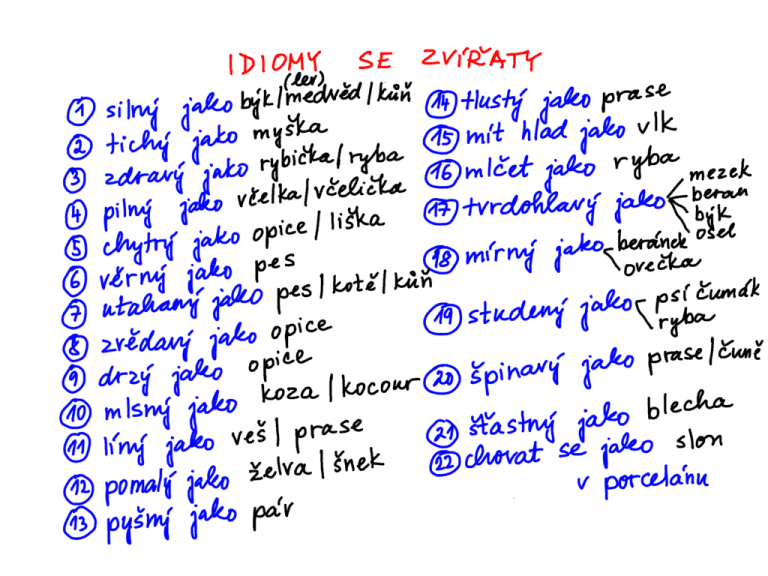 IDIOMY SE ZVÍŘATY
(lev)
1 silný jako býk/medvěd/kůň
2 tichý jako myška
3 zdravý jako rybička/ryba
4 pilný jako včelka/včelička
5 chytrý jako opice/liška
6 věrný jako pes
7 utahaný jako pes/kotě/kůň
8 zvědavý jako opice
9 drzý jako opice
10 mlsný jako koza/kocour
11 líný jako veš/prase
12 pomalý jako želva/šnek
13 pyšný jako páv
14 tlustý jako prase
15 mít hlad jako vlk
16 mlčet jako ryba
17 tvrdohlavý jako mezek
beran
býk
osel
18 mírný jako beránek
ovečka
19 studený jako psí čumák
ryba
20 špinavý jako prase/čuně
21 šťastný jako blecha
22 chovat se jako slon
v porcelánu